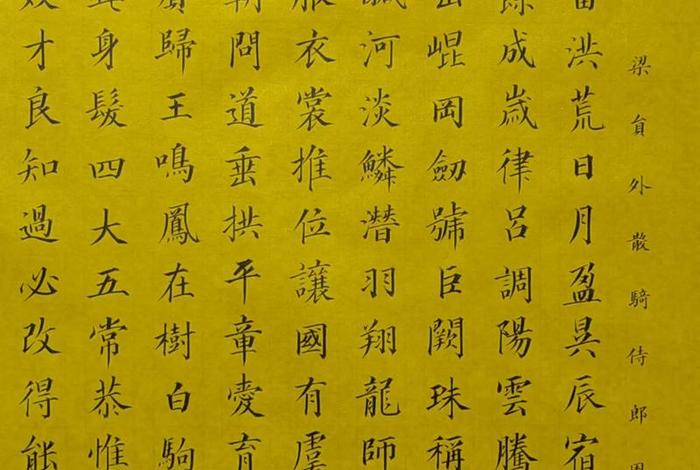 梁員外散騎侍郎
宙洪荒日月盈昃辰宿
餘成歲律呂調陽雲騰
出崐岡劒號巨闕珠稱
鹹河淡鱗潛羽翔龍師
服衣裳推位讓國有虞
朝問道垂拱平章愛育
賓歸王鳴鳳在樹白駒
身髮四大五常恭惟
效才良知過必改得能